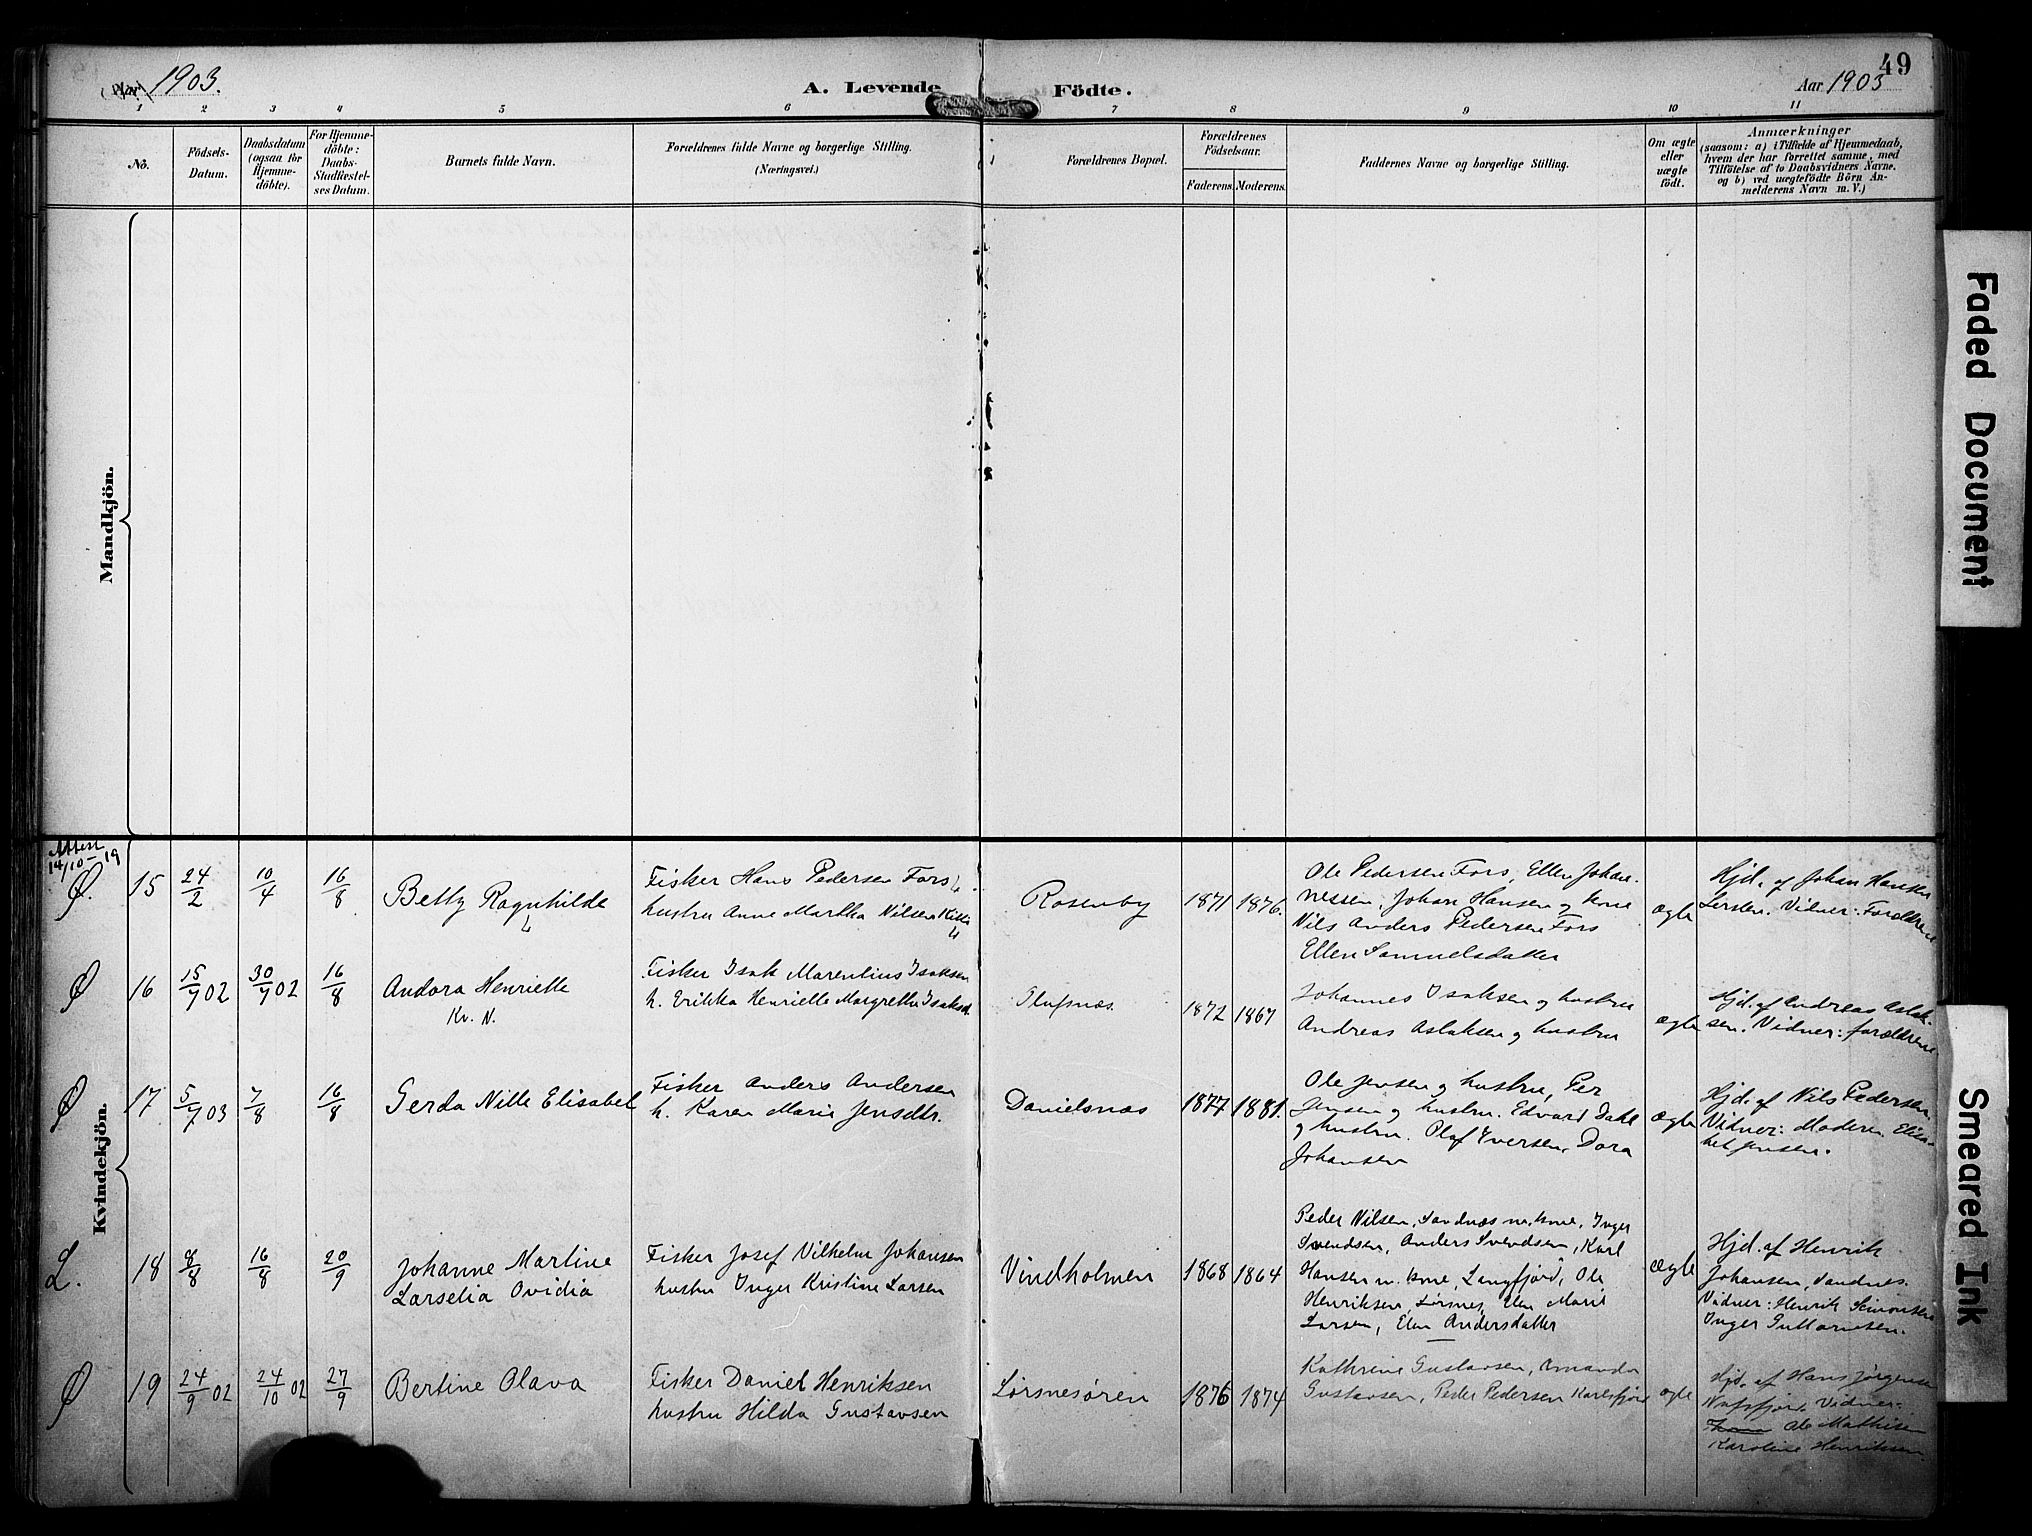 Aar 1903.
A. Levende Födte.
Aar 1903
49
1 2 3 4 5 6 7 8 9 10 11
No.
Födsels-
Datum.
Daabsdatum
(ogsaa for
Hjemme-
döbte).
For Hjemme-
döbte:
Daabs-
Stadfæstel-
ses Datum.
Barnets fulde Navn.
Forældrenes fulde Navne og borgerlige Stilling.
(Næringsvei.)
Forældrenes Bopæl.
Forældrenes
Födselsaar.
Faderens. Moderens.
Faddernes Navne og borgerlige Stilling.
Om ægte
eller
uægte
födt.
Anmærkninger
(saasom: a) i Tilfælde af Hjemmedaab,
hvem der har forrettet samme, med
Tilföielse af to Daabsvidners Navne,
og b) ved uægtefödte Börn An-
melderens Navn m. V.)
Mandkjön.
Kvindekjön.
Attest
14/10-19
Ø. 15 24/2 10/4 16/8
Betty Ragnhilde
Fisker Hans Pedersen Fors
hustru Anne Martha Nilsen
Rosenby
1871 1876.
Ole Pedersen Fors, Ellen Johan-
nessen, Johan Hansen og kone
Nils Anders Pedersen Fors
Ellen Samuelsdatter
ægte
Hjd. af Johan Hansen
Vidner: Forældrene
Ø 16 15/7 02 30/7 02 16/8
Andora Henriette
Kv. N.
Fisker Isak Marentius Isaksen
h. Erikka Henriette Margrethe Isaksd.
Olufsnæs.
1872 1867
Johannes Isaksen og hustru
Andreas Aslaksen og hustru
ægte
Hjd. af Andreas Aslak-
sen. Vidner: forældrene
Ø 17 5/7 03 7/8 16/8
Gerda Nille Elisabet
Fisker Anders Andersen
h. Karen Marie Jensdtr.
Danielsnæs
1877 1881.
Ole Jensen og hustru, Per
Jensen og hustru. Edvard Dahl
og hustru. Olaf Iversen, Dora
Johansen
ægte
Hjd. af Nils Pedersen
Vidner: Moderen, Elisa-
bet Jensen.
L. 18 8/8 16/8 20/9
Johanne Martine
Larselia Ovidia
Fisker Josef Vilhelm Johansen
hustru Inger Kristine Larsen
Vindholmen
1868 1864
Peder Nilsen, Sandnæs m. kone, Inger
Svendsen, Anders Svendsen, Karl
Hansen m. kone, Langfjord, Ole
Henriksen, Lørsnes, Elen Marie
Larsen, Elen Andersdatter
ægte
Hjd. af Henrik
Johansen, Sandnes.
Vidner: Henrik Simonsen
Inger Guttormsen.
Ø 19 24/9 02 24/10 02 27/9
Bertine Olava
Fisker Daniel Henriksen
hustru Hilda Gustavsen
Lørsnesøren
1876 1874
Kathrine Gustavsen, Amanda
Gustavsen, Peder Pedersen Karlsfjord
ægte
Hjd. af Hans Jørgensen
Vidner:
Ole Mathisen
Karoline Henriksen
Faded Document
Smeared Ink